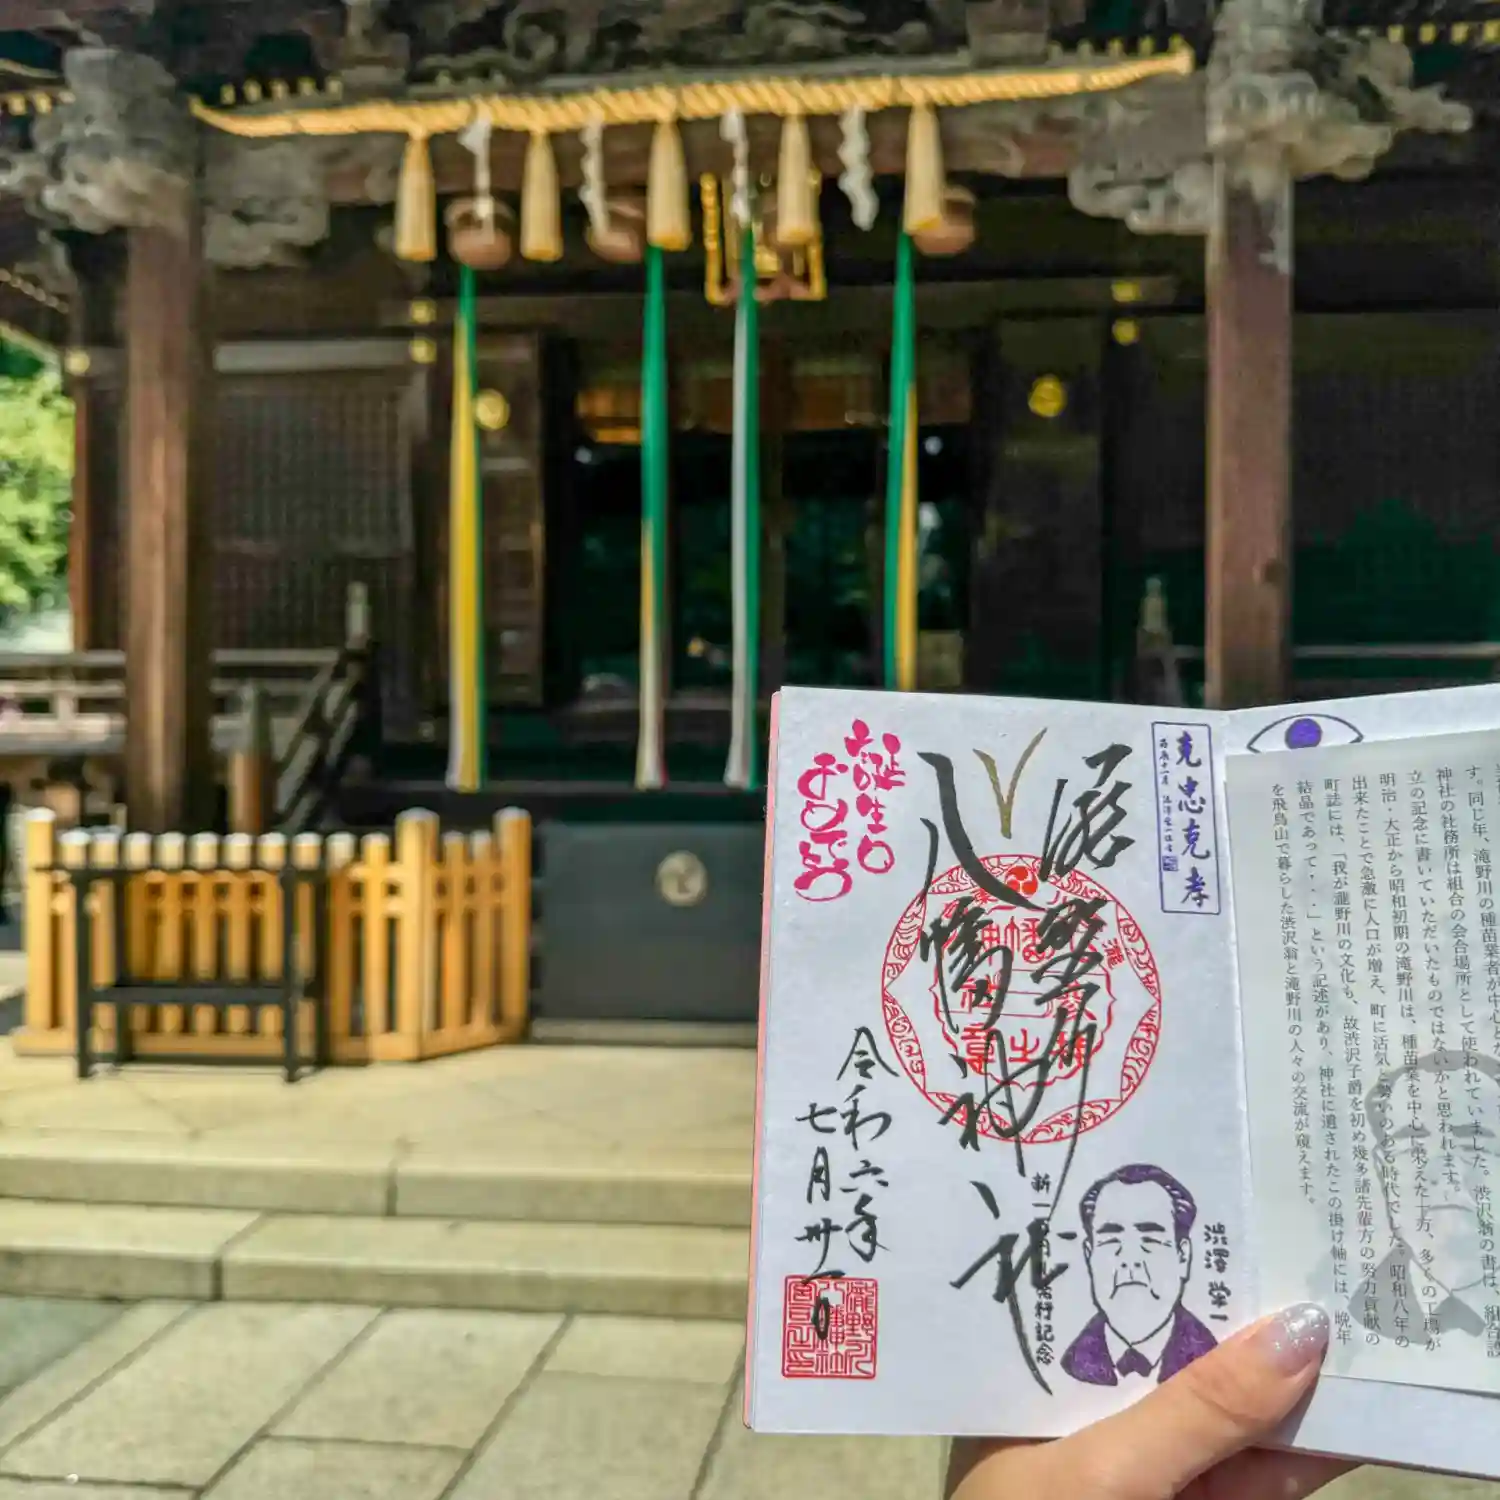 克忠克孝
滝野川
八幡神社
誕生日
おめでとう
令和六年
七月卅一日
渋澤栄一
新一万円札発行記念
す。同じ年、滝野川の種苗業者が中心と
神社の社務所は組合の会合場所として使われていました。渋沢翁の書は、組合設
立の記念に書いていただいたものではないかと思われます。
明治・大正から昭和初期の滝野川は、種苗業を中心に栄えた一方、多くの工場が
出来たことで急激に人口が増え、町に活気と勢いのある時代でした。昭和八年の
町誌には、「我が瀧野川の文化も、故渋沢子爵を初め幾多諸先輩方の努力貢献の
結晶であって・・・」という記述があり、神社に遺されたこの掛け軸には、晩年
を飛鳥山で暮らした渋沢翁と滝野川の人々の交流が窺えます。